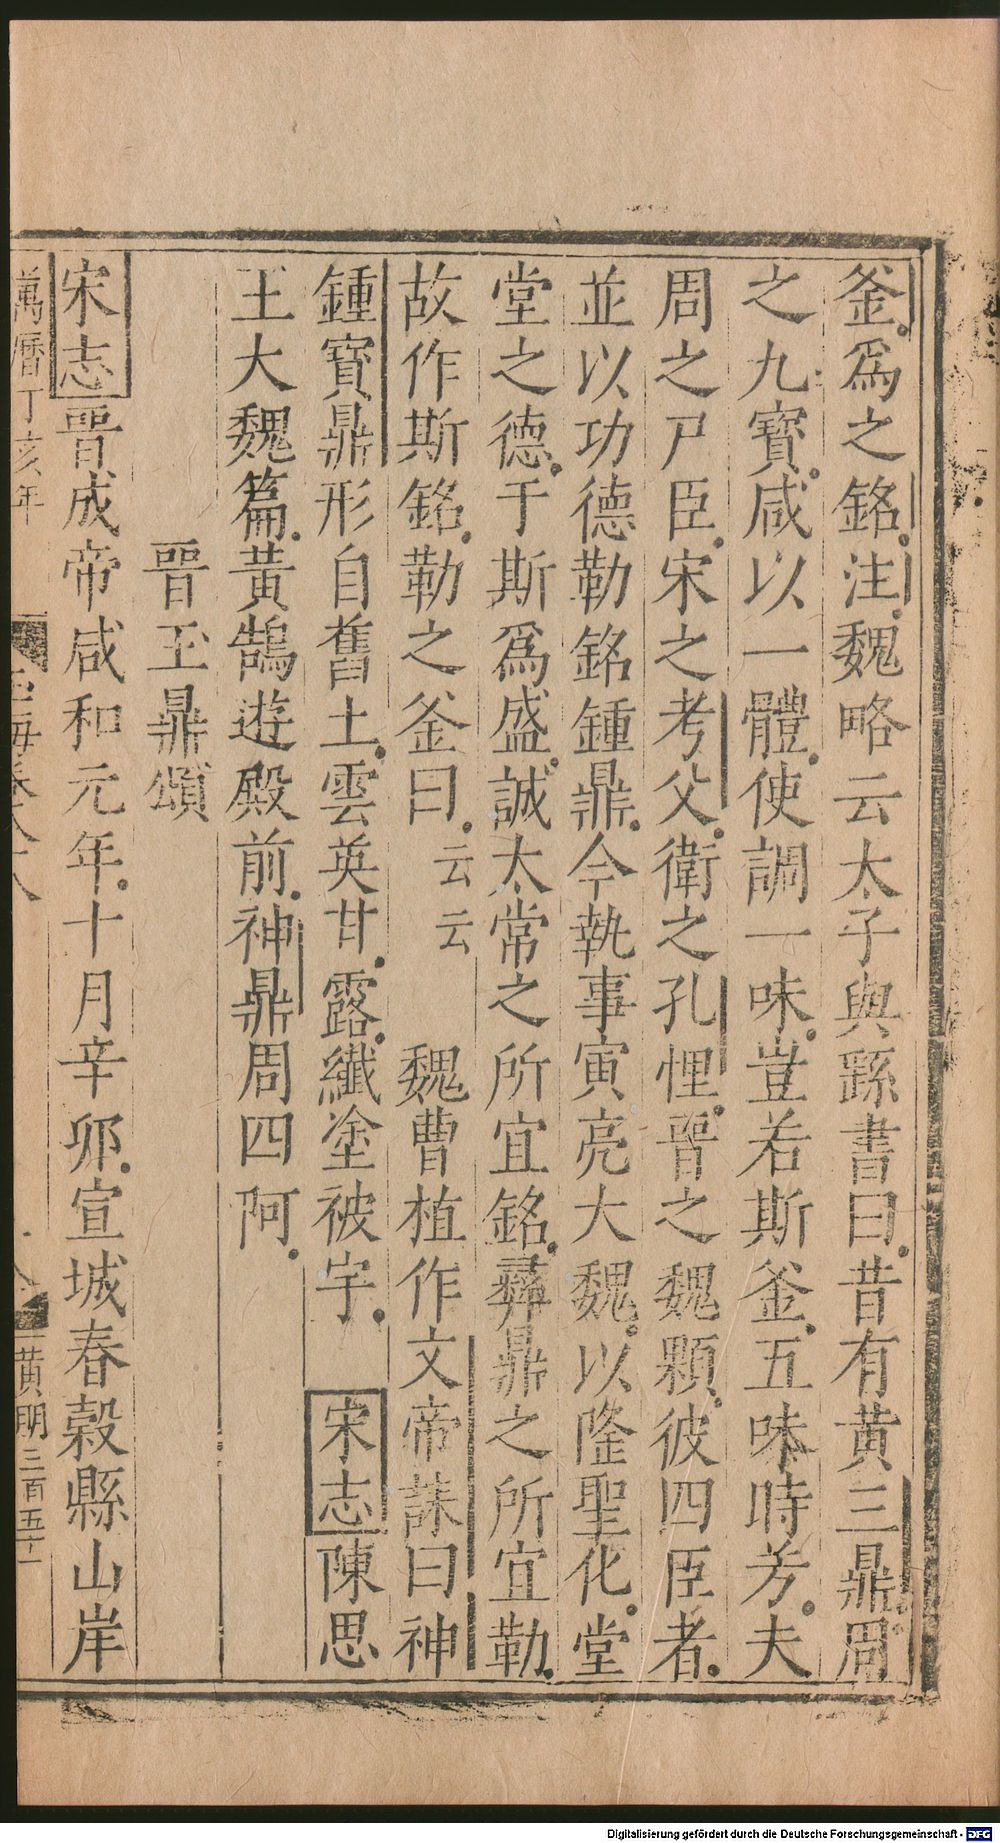 釜爲之銘注魏略云太子與繇書曰昔有黄三鼎周
之九寳咸以一體使調一味豈若斯釜五味時芳夫
周之尸臣宋之考父衛之孔悝晉之魏顆彼四臣者
並以功德勒銘鍾鼎今執事寅亮大魏以隆聖化堂
堂之德于斯爲盛誠太常之所宜銘彝鼎之所宜勒
故作斯銘勒之釜曰云云　魏曹植作文帝誄曰神
鍾寳鼎形自舊土雲英甘露纖塗被宇　宋志陳思
王大魏篇黄鵠遊殿前神鼎周四阿
晉玉鼎頌
宋志晉成帝咸和元年十月辛卯宣城春榖縣山岸
萬曆丁亥年
玉海卷八十八
黄明三百五十一
Digitalisierung gefördert durch die Deutsche Forschungsgemeinschaft - DFG